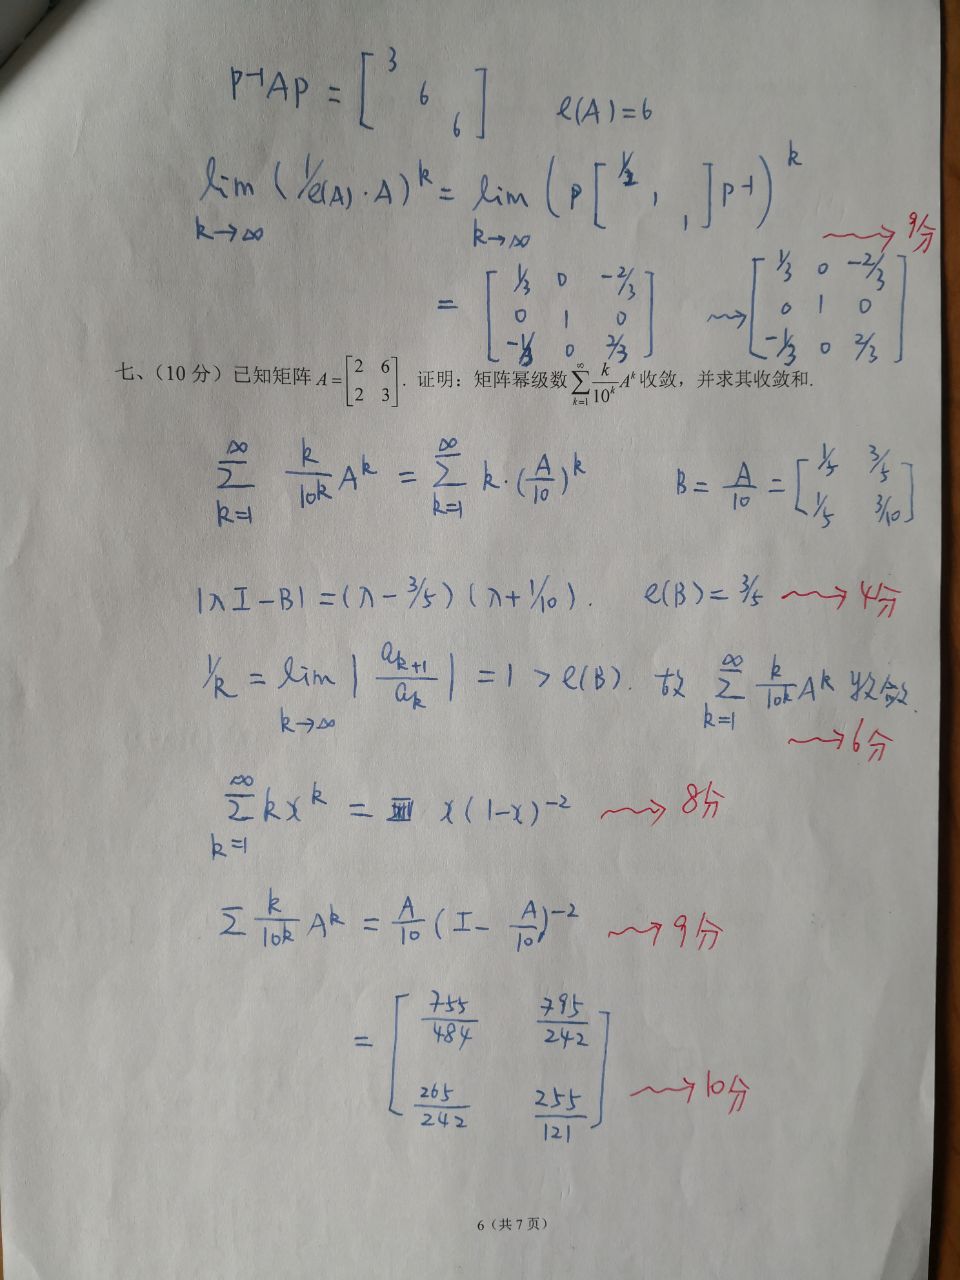 P⁻¹AP = [3 6 6] ℓ(A)=6
lim k→∞ (1/ℓ(A)·A)ᵏ = lim k→∞ (P[1/2, 1, 1]P⁻¹)ᵏ
→ 9分
= [1/3 0 -2/3; 0 1 0; -1/3 0 2/3] → [1/3 0 -2/3; 0 1 0; -1/3 0 2/3]
七、(10 分) 已知矩阵 A=[2 6; 2 3]. 证明: 矩阵幂级数 ∑_{k=1}^{∞} k/10ᵏ Aᵏ 收敛, 并求其收敛和.
∑_{k=1}^{∞} k/10ᵏ Aᵏ = ∑_{k=1}^{∞} k·(A/10)ᵏ B = A/10 = [1/5 3/5; 1/5 3/10]
|λI-B| = (λ-3/5)(λ+1/10). ℓ(B)=3/5 → 4分
1/R = lim k→∞ |a_{k+1}/a_k| = 1 > ℓ(B). 故 ∑_{k=1}^{∞} k/10ᵏ Aᵏ 收敛.
→ 6分
∑_{k=1}^{∞} kxᵏ = x(1-x)⁻² → 8分
∑ k/10ᵏ Aᵏ = A/10 (I - A/10)⁻² → 9分
= [755/484 795/242; 265/242 255/121] → 10分
6 (共 7 页)